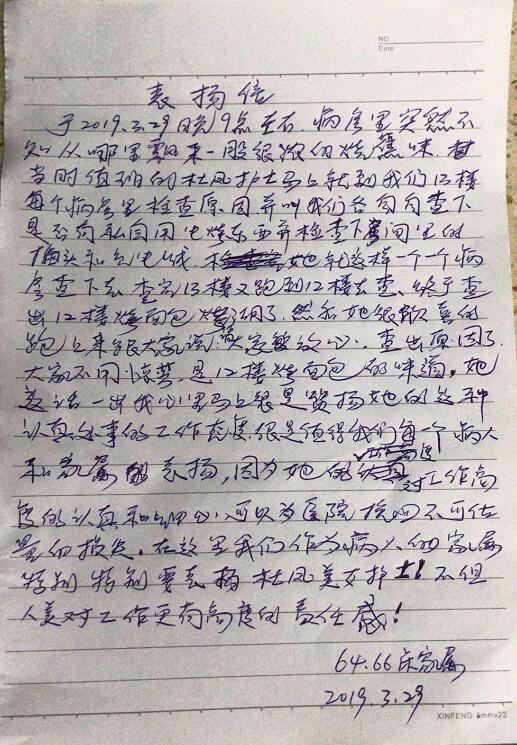 NO.
Date
表扬信
于2019.3.29晚9点左右，病房里突然不
知从哪里飘来一股很浓的烧蕉味，
当时值班的杜风护士马上就到我们13楼
每个病房里检查原因并叫我们各自自查下
是否有私自用电烧东西并检查下房间里的
插头和各电线，她就这样一个一个病
房查下去，查完13楼又跑到12楼去查，终于查
出12楼烤面包烤糊了，然后她很欢喜的
跑上来跟大家说：大家放心，查出原因了
大家不用惊慌，是12楼烤面包的味道，她
话一出我心里马上很是赞扬她的这种
认真办事的工作态度，很是值得我们每一个病人
和家属的表扬，因为她的
对工作高
度的认真和细心，可以为医院挽回不可估
量的损失，在这里我们作为病人的家属
特别特别要表扬杜风美女护士！不但
人美对工作更有高度的责任感！
64.66床家属
2019.3.29
XINFENG 8mmx23